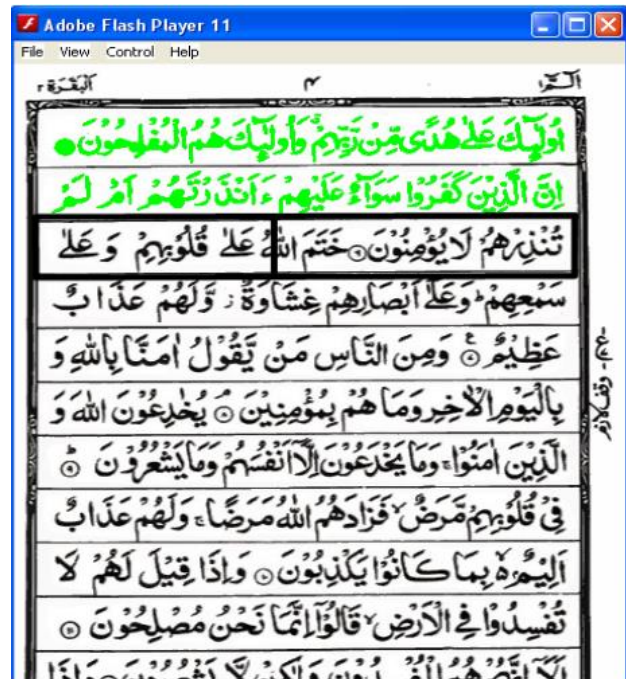 Adobe Flash Player 11
File View Control Help
الٓمّٓ ١ ٤ البقرة ٢
اُولٰٓئِكَ عَلٰى هُدًى مِّنْ رَّبِّهِمْ وَاُولٰٓئِكَ هُمُ الْمُفْلِحُوْنَ
اِنَّ الَّذِيْنَ كَفَرُوْا سَوَآءٌ عَلَيْهِمْ ءَاَنْذَرْتَهُمْ اَمْ لَمْ
تُنْذِرْهُمْ لَا يُؤْمِنُوْنَ ۶ خَتَمَ اللّٰهُ عَلٰى قُلُوْبِهِمْ وَ عَلٰى
سَمْعِهِمْ ؕ وَعَلٰٓى اَبْصَارِهِمْ غِشَاوَةٌ ز وَّلَهُمْ عَذَابٌ
عَظِيْمٌ ۝ وَمِنَ النَّاسِ مَنْ يَّقُوْلُ اٰمَنَّا بِاللّٰهِ وَ
بِالْيَوْمِ الْاٰخِرِ وَمَا هُمْ بِمُؤْمِنِيْنَ ۝ يُخٰدِعُوْنَ اللّٰهَ وَ
الَّذِيْنَ اٰمَنُوْا ۚ وَمَا يَخْدَعُوْنَ اِلَّآ اَنْفُسَهُمْ وَمَا يَشْعُرُوْنَ ۹
فِيْ قُلُوْبِهِمْ مَّرَضٌ ۙ فَزَادَهُمُ اللّٰهُ مَرَضًا ۚ وَلَهُمْ عَذَابٌ
اَلِيْمٌ ۢ بِمَا كَانُوْا يَكْذِبُوْنَ ۝ وَاِذَا قِيْلَ لَهُمْ لَا
تُفْسِدُوْا فِي الْاَرْضِ ۙ قَالُوْٓا اِنَّمَا نَحْنُ مُصْلِحُوْنَ ۝